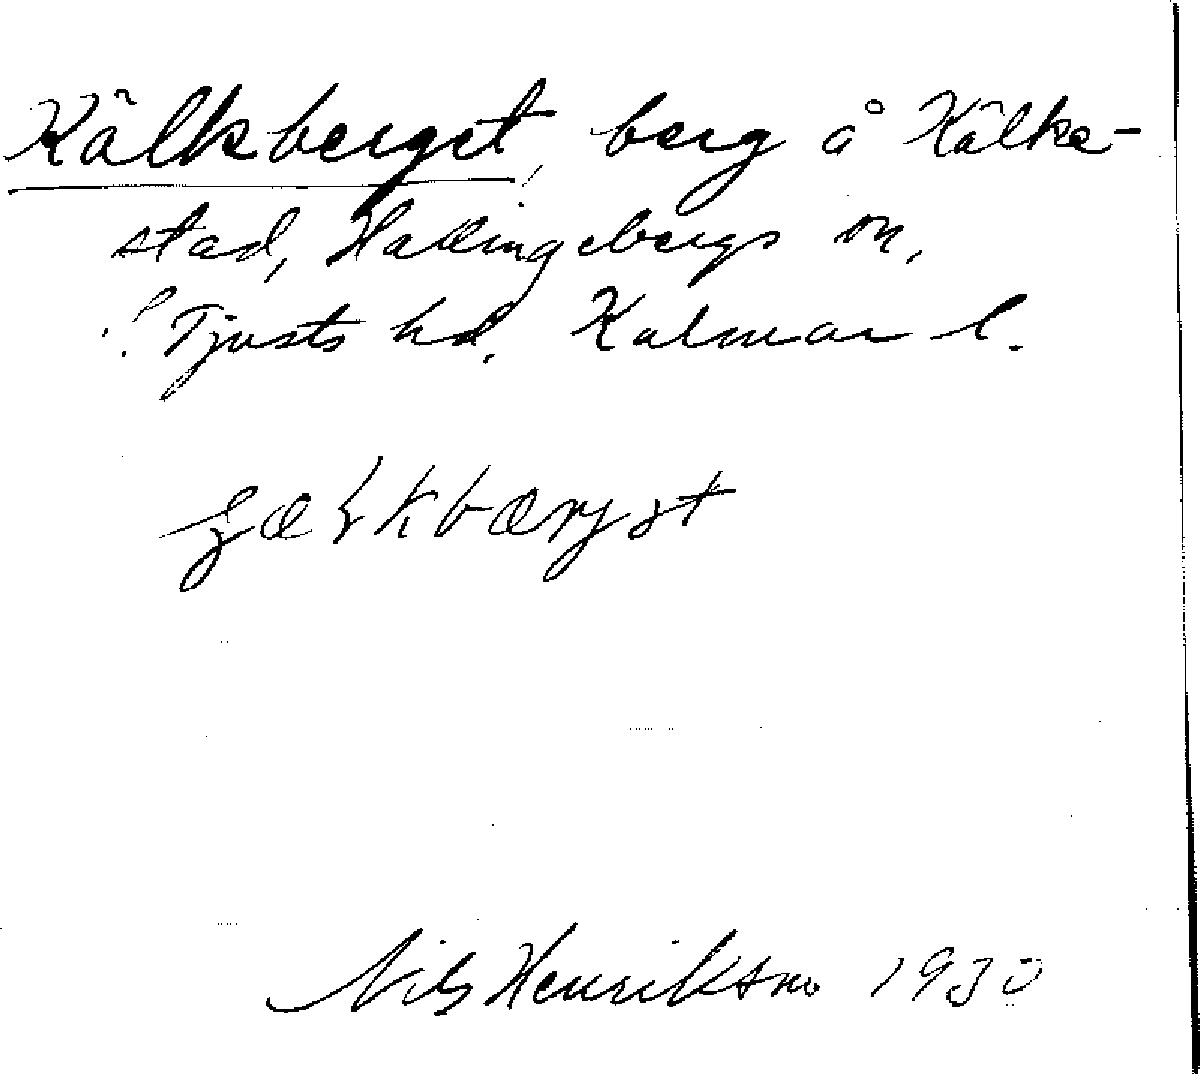 Kälkberget, berg å Kälke-
stad, Hallingebergs sn,
S. Tjusts hd, Kalmar l.
Nils Henrikson 1930